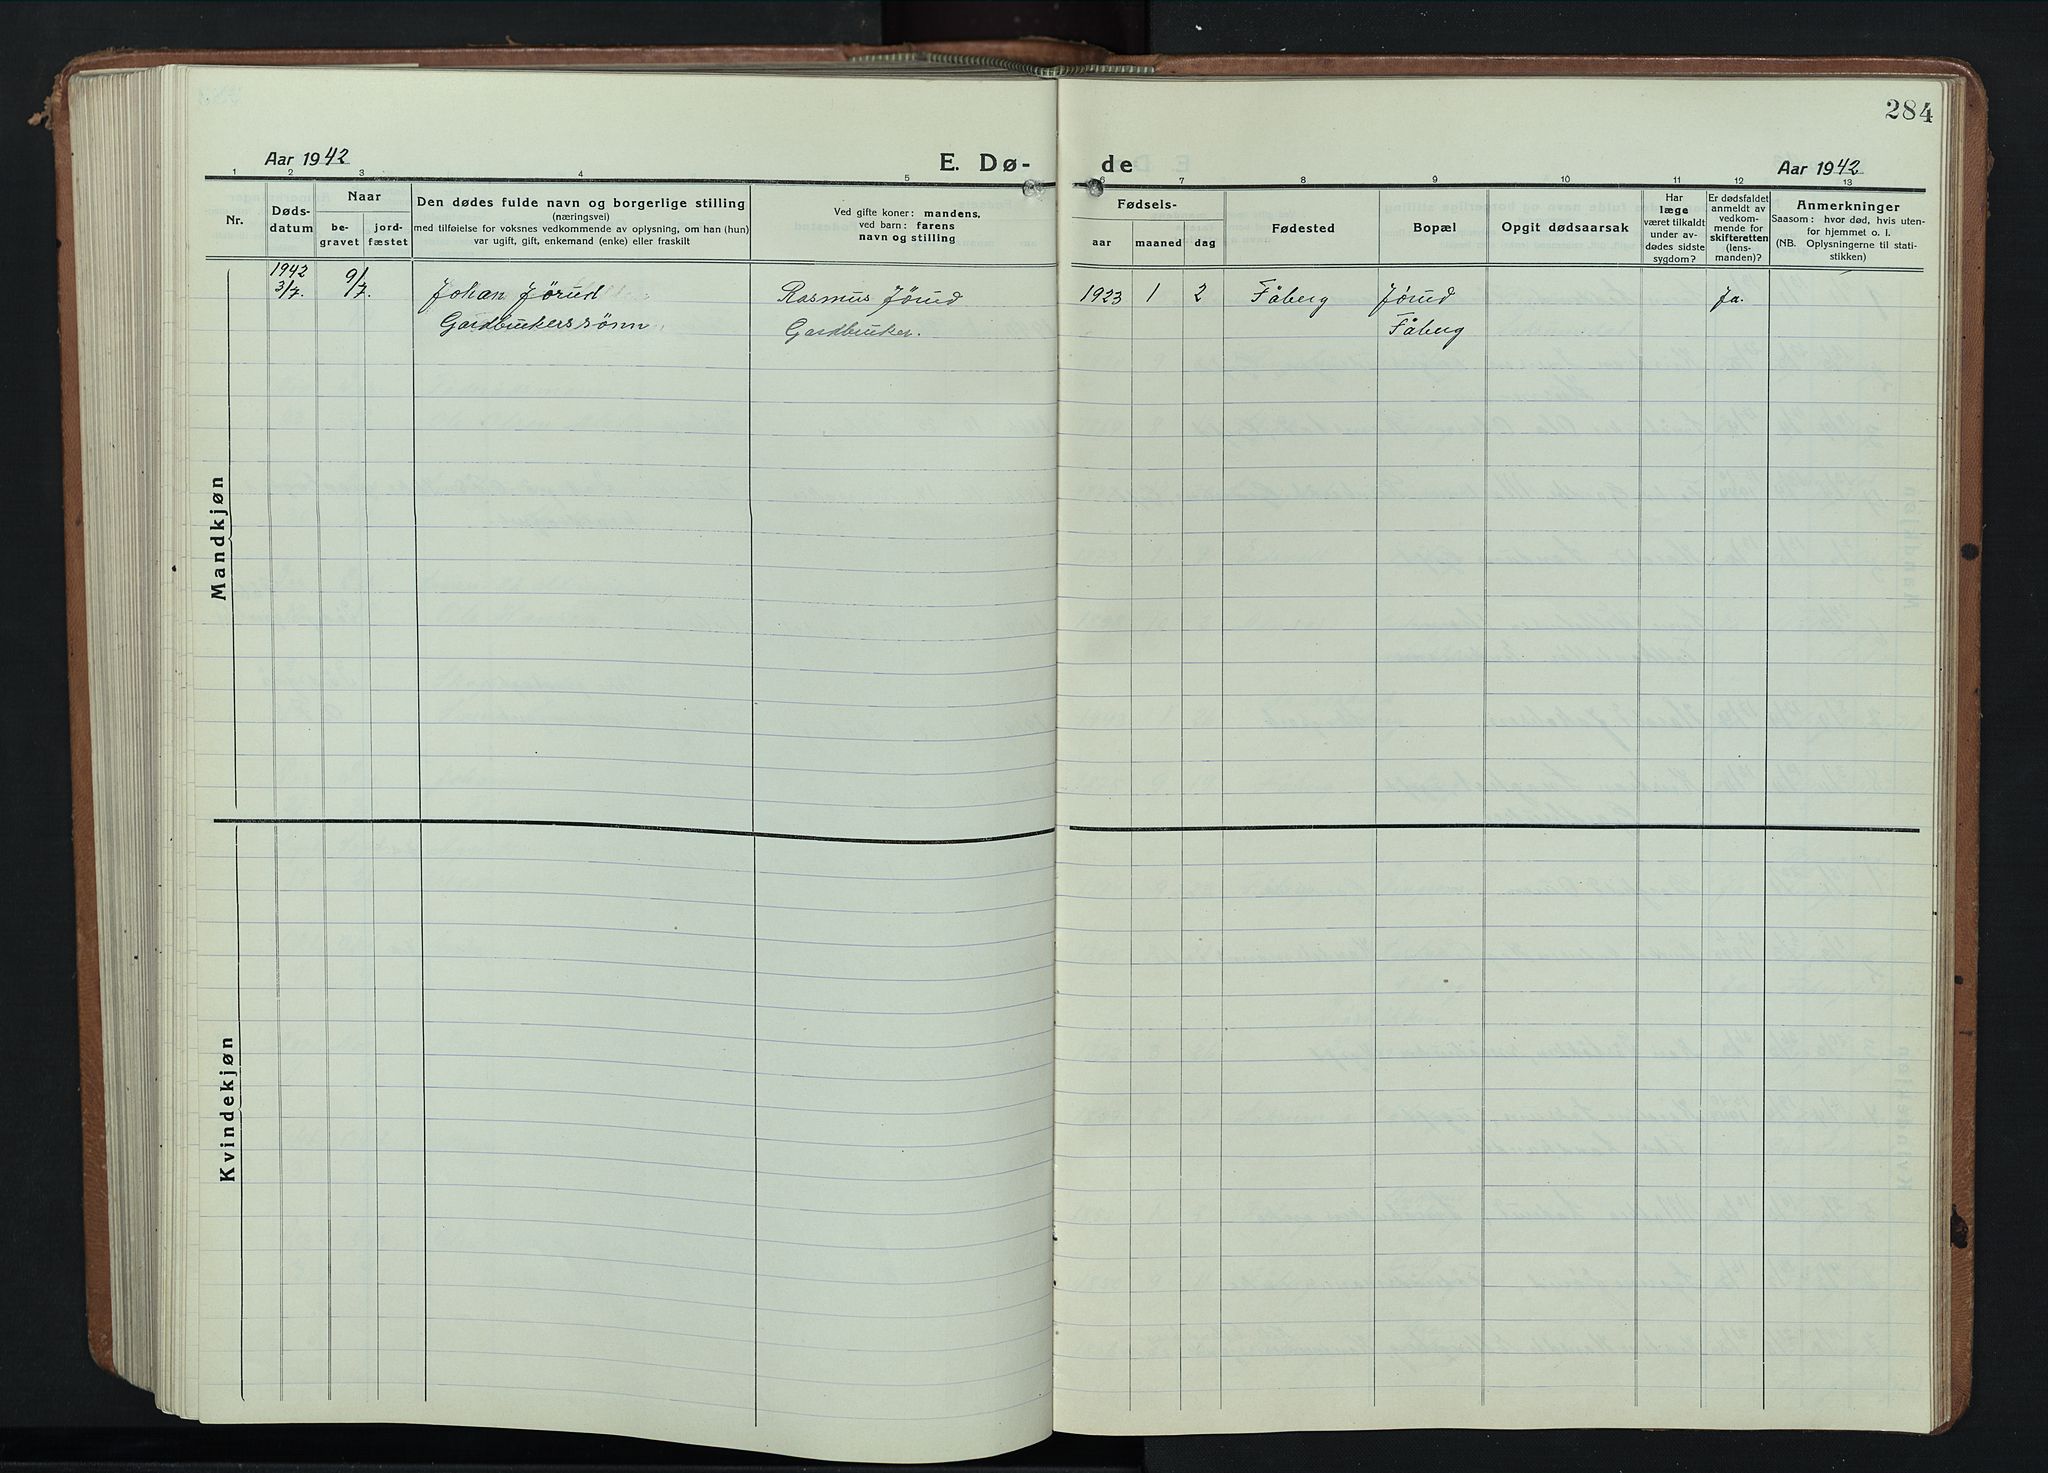 284
Aar 1942
E. Dø-
de
Aar 1942
1 2 3 4 5 6 7 8 9 10 11 12 13
Nr.
Døds-
datum
Naar
be-
gravet
jord-
fæstet
Den dødes fulde navn og borgerlige stilling
(næringsvei)
med tilføielse for voksnes vedkommende av oplysning, om han (hun)
var ugift, gift, enkemand (enke) eller fraskilt
Ved gifte koner: mandens,
ved barn: farens
navn og stilling
Fødsels-
aar
maaned
dag
Fødested
Bopæl
Opgit dødsaarsak
Har
læge
været tilkaldt
under av-
dødes sidste
sygdom?
Er dødsfaldet
anmeldt av
vedkom-
mende for
skifteretten
(lens-
manden)?
Anmerkninger
Saasom: hvor død, hvis uten-
for hjemmet o. l.
(NB. Oplysningerne til stati-
stikken)
1942
3/7. 9/7. Johan Jørud Rasmus Jørud 1923 1 2 Fåberg Jørud Ja.
Gardbrukerssønn Gardbruker. Fåberg
Mandkjøn
Kvindekjøn